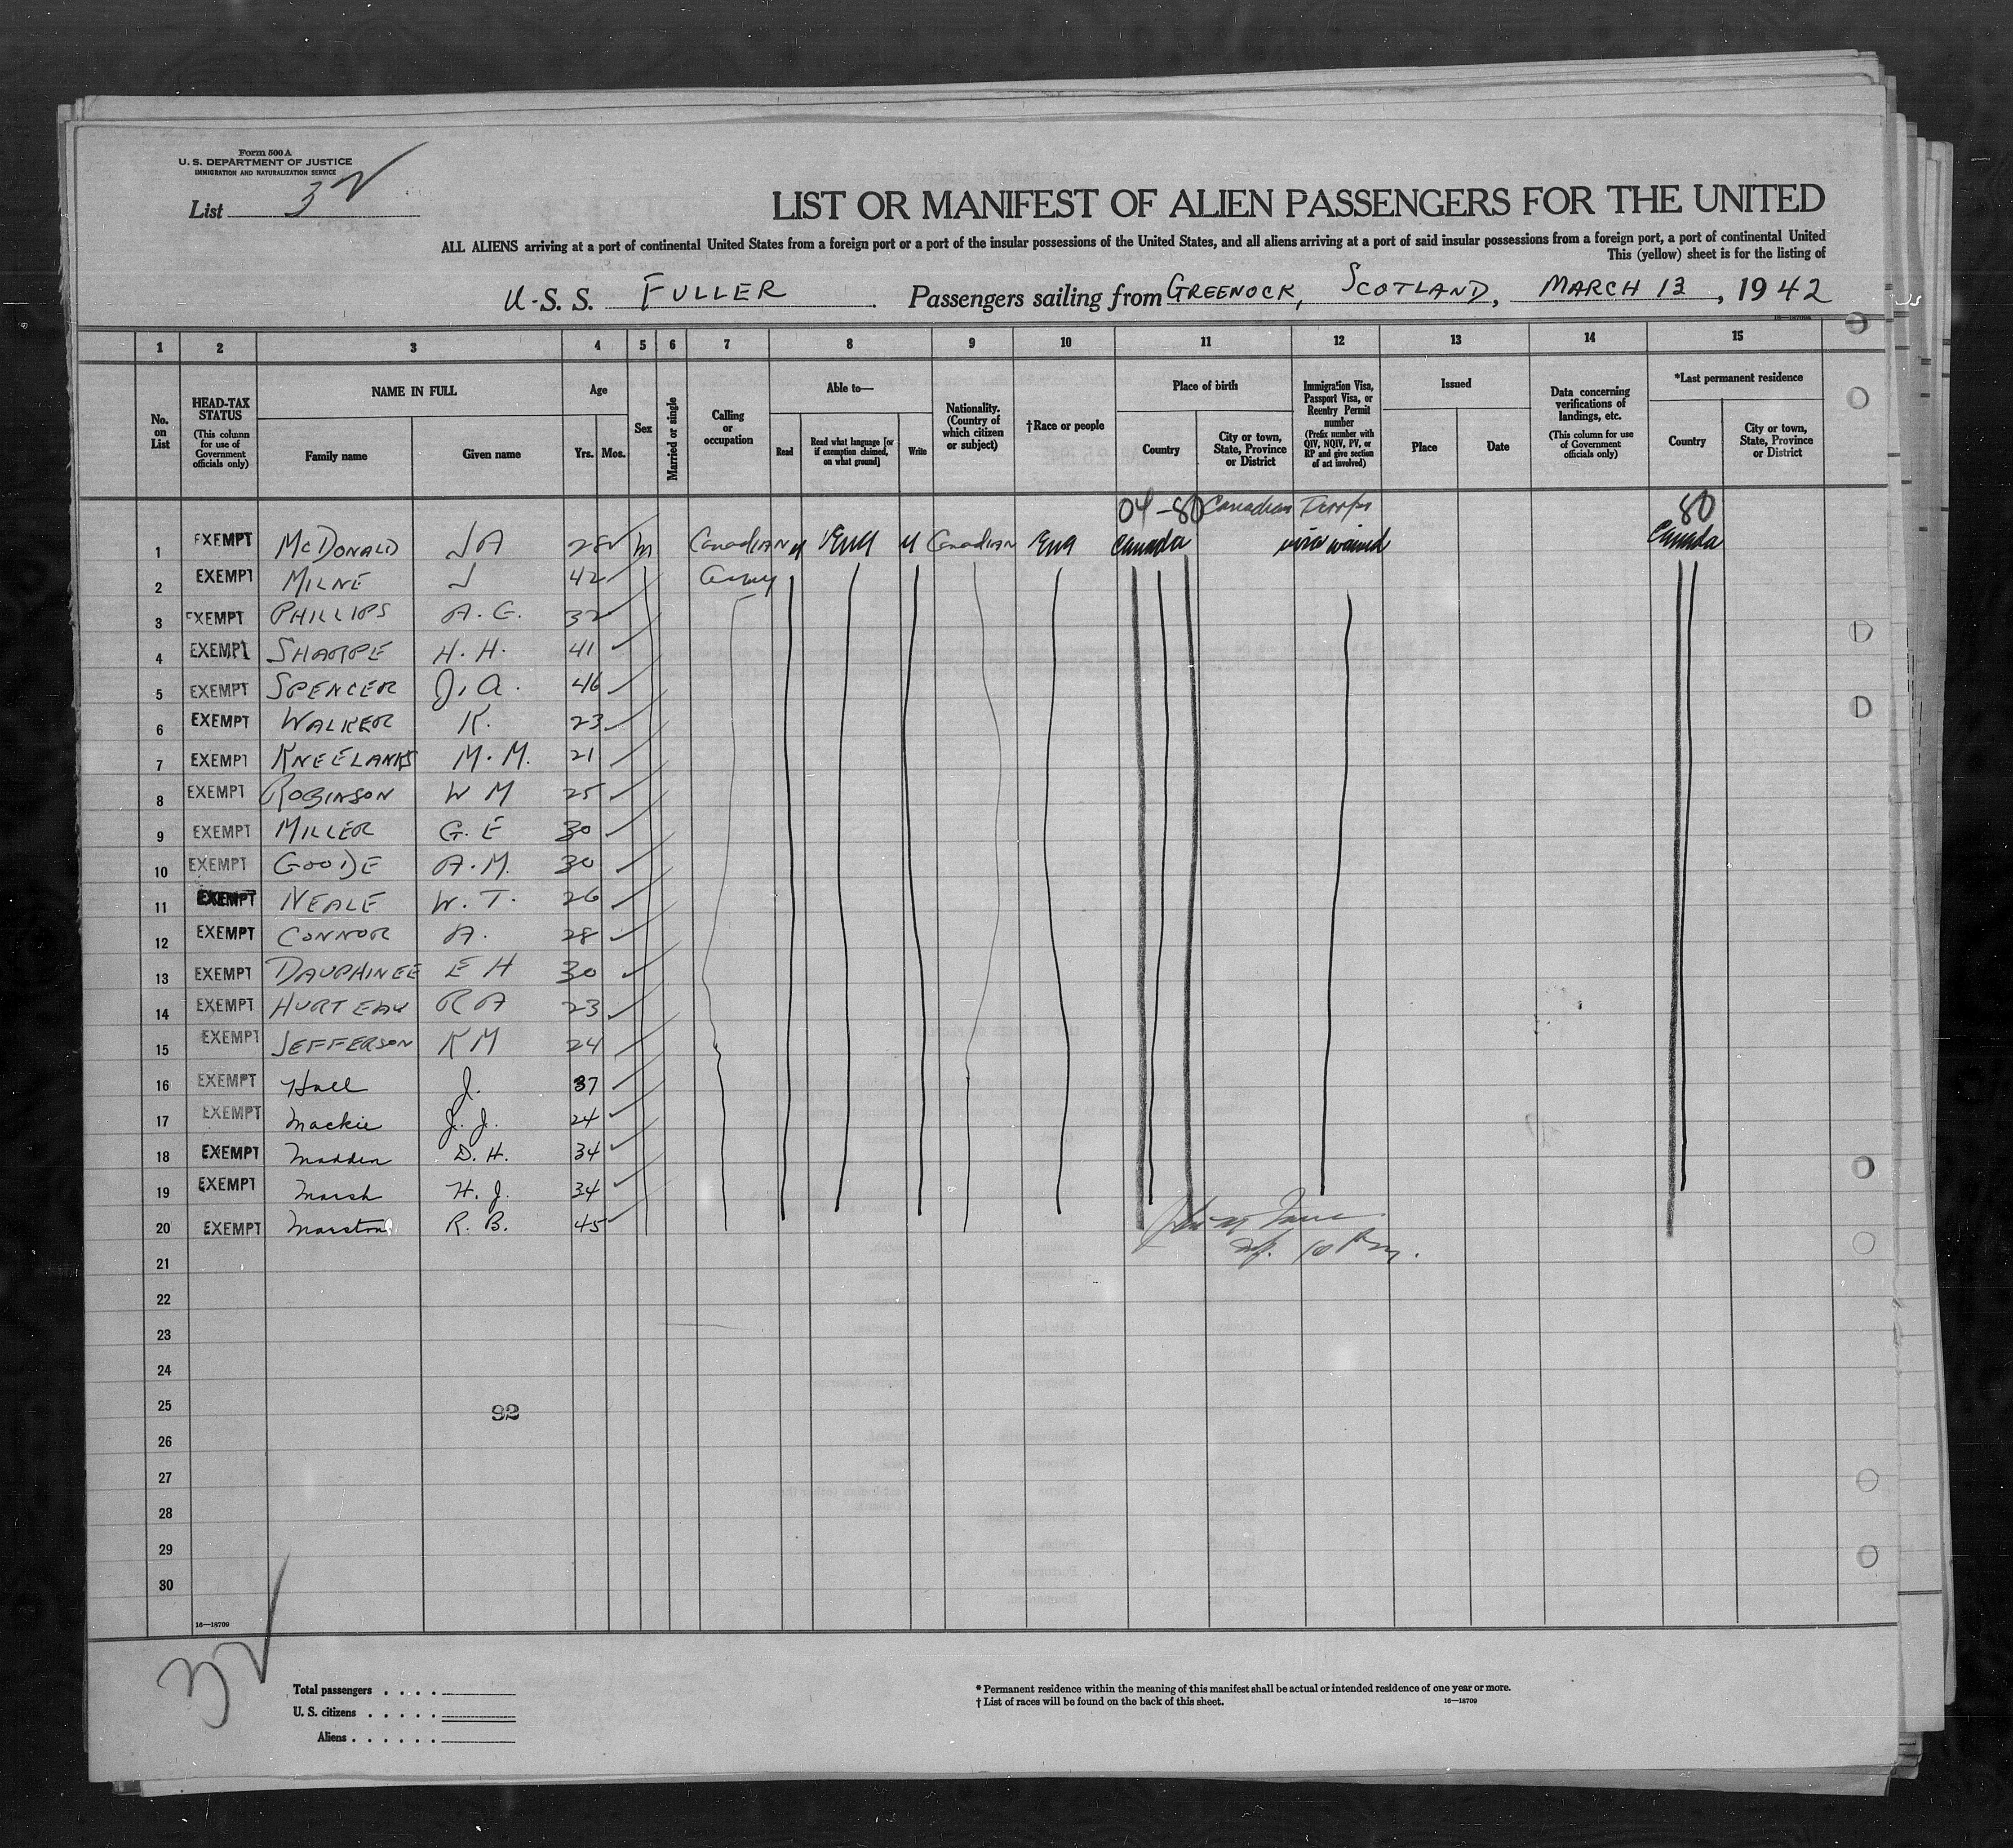 Form 500 A
U. S. DEPARTMENT OF JUSTICE
IMMIGRATION AND NATURALIZATION SERVICE
List 3
LIST OR MANIFEST OF ALIEN PASSENGERS FOR THE UNITED
ALL ALIENS arriving at a port of continental United States from a foreign port or a port of the insular possessions of the United States, and all aliens arriving at a port of said insular possessions from a foreign port, a port of continental United
This (yellow) sheet is for the listing of
U.S.S. FULLER Passengers sailing from GREENOCK, SCOTLAND, MARCH 13, 1942
1 2 3 4 5 6 7 8 9 10 11 12 13 14 15
No. on List
HEAD-TAX STATUS
(This column for use of Government officials only)
NAME IN FULL
Family name Given name
Age
Yrs. Mos.
Sex
Married or single
Calling or occupation
Able to—
Read
Read what language [or if exemption claimed, on what ground]
Write
Nationality. (Country of which citizen or subject)
†Race or people
Place of birth
Country
City or town, State, Province or District
Immigration Visa, Passport Visa, or Reentry Permit number
(Prefix number with QIV, NQIV, PV, or RP and give section of act involved)
Issued
Place Date
Data concerning verifications of landings, etc.
(This column for use of Government officials only)
*Last permanent residence
Country
City or town, State, Province or District
04-80 Canadian Troops 80
1 EXEMPT McDONALD J A 28 m Canadian y Eng y Canadian Eng Canada visa waived Canada
2 EXEMPT MILNE J 42 Army
3 EXEMPT PHILLIPS A. G. 32
4 EXEMPT SHARPE H. H. 41
5 EXEMPT SPENCER J. A. 46
6 EXEMPT WALKER K. 23
7 EXEMPT KNEELANDS M. M. 21
8 EXEMPT ROBINSON W M 25
9 EXEMPT MILLER G. E 30
10 EXEMPT GOODE A. M. 30
11 EXEMPT NEALE W. T. 26
12 EXEMPT CONNOR A. 28
13 EXEMPT DAUPHINEE E H 30
14 EXEMPT HURTEAU R A 23
15 EXEMPT JEFFERSON K M 24
16 EXEMPT Hall J. 37
17 EXEMPT Mackie J. J. 24
18 EXEMPT Madden D. H. 34
19 EXEMPT Marsh H. J. 34
20 EXEMPT Marston R. B. 45
21
22
23
24
25
92
26
27
28
29
30
16—18709
3
Total passengers . . . .
U. S. citizens . . . . .
Aliens . . . . . .
* Permanent residence within the meaning of this manifest shall be actual or intended residence of one year or more.
† List of races will be found on the back of this sheet. 16—18709